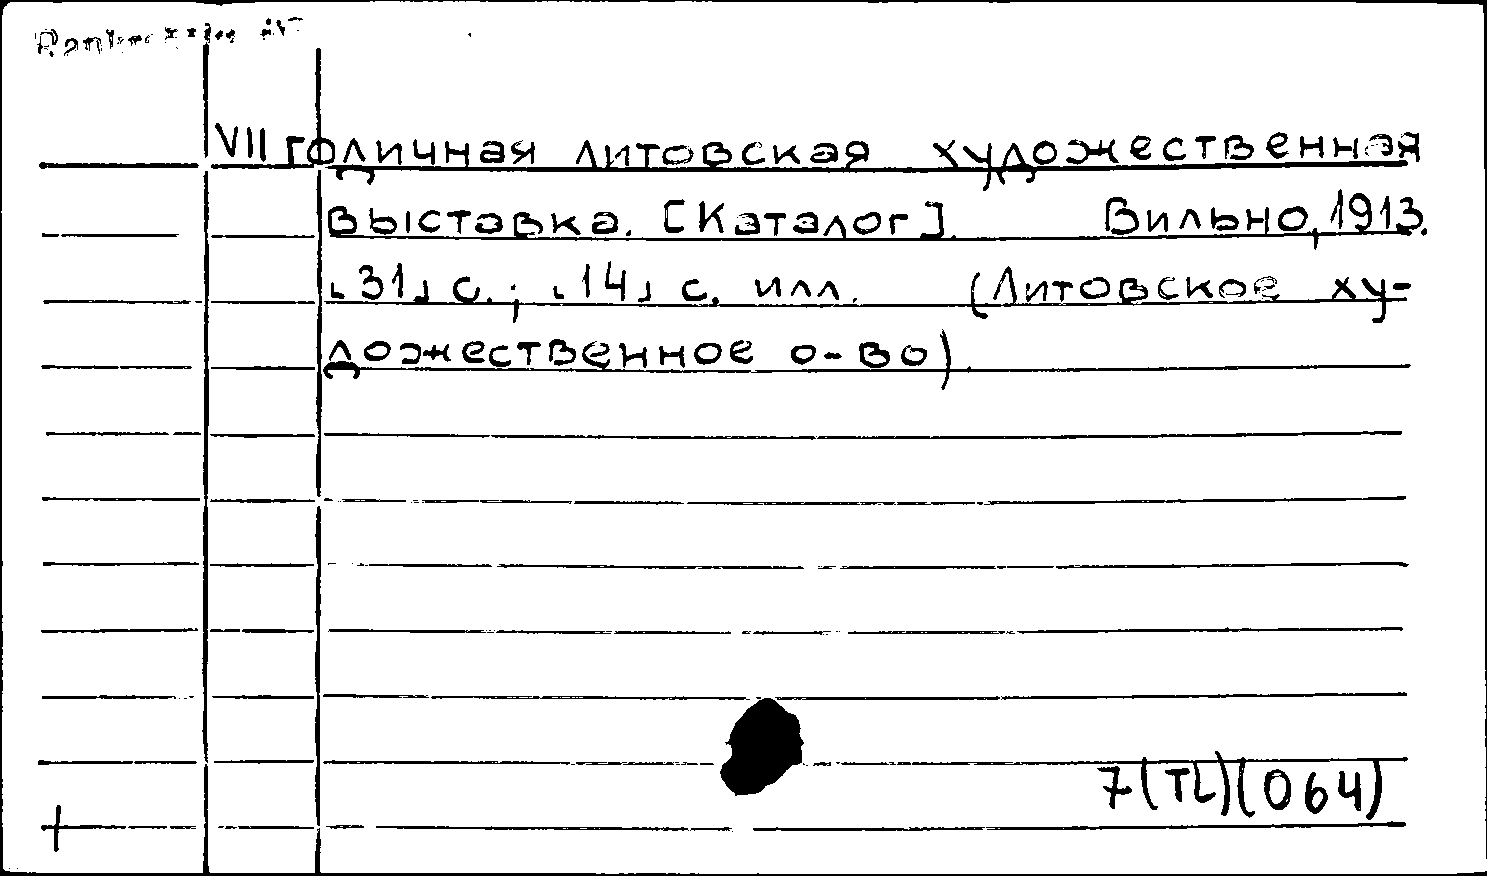 VII годичная литовская художественная
выставка. [Каталог]. Вильно, 1913.
⌞31⌟ с.; ⌞14⌟ с. илл. (Литовское ху-
дожественное о-во).
7(TL)(064)